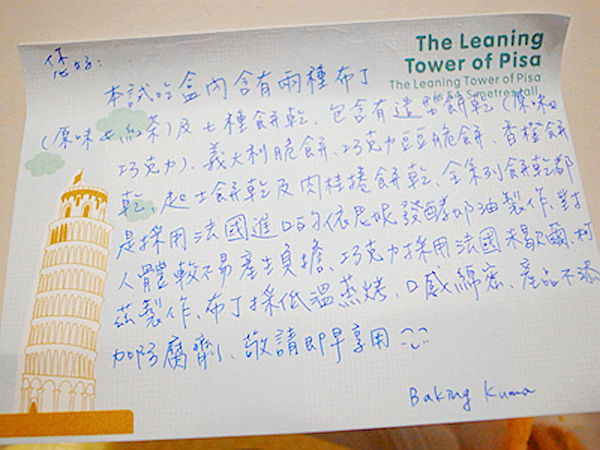 The Leaning
Tower of Pisa
The Leaning Tower of Pisa
is 54.5 metres tall.
您好:
本試吃盒內含有兩種布丁
(原味&紅茶)及七種餅乾、包含有造型餅乾(原味&
巧克力)、義大利脆餅、巧克力豆豆脆餅、香橙餅
乾、起士餅乾及肉桂捲餅乾、全系列餅乾都
是採用法國進口的依思妮發酵奶油製作、對
人體較不易產生負擔、巧克力採用法國米歇爾.柯
茲製作、布丁採低溫蒸烤、口感綿密、產品不添
加防腐劑、敬請即早享用
Baking Kuma